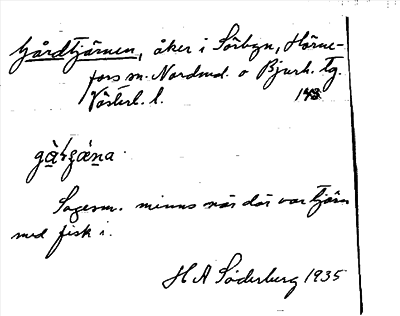 Gårdtjärnen, åker i Sörbyn, Hörne-
fors sn. Nordml. o Bjurh. tg.
Västerb. l. 143
gàrʒæna
Sagesm. minns när där var tjärn
med fisk i.
H A Söderberg 1935